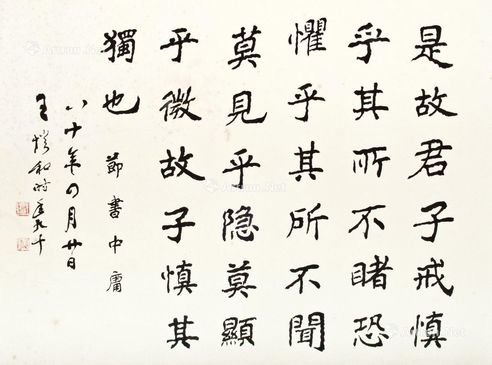 是故君子戒慎
乎其所不睹恐
懼乎其所不聞
莫見乎隐莫顯
乎微故子慎其
獨也 節書中庸
八十年四月廿日
王愷和時年九十